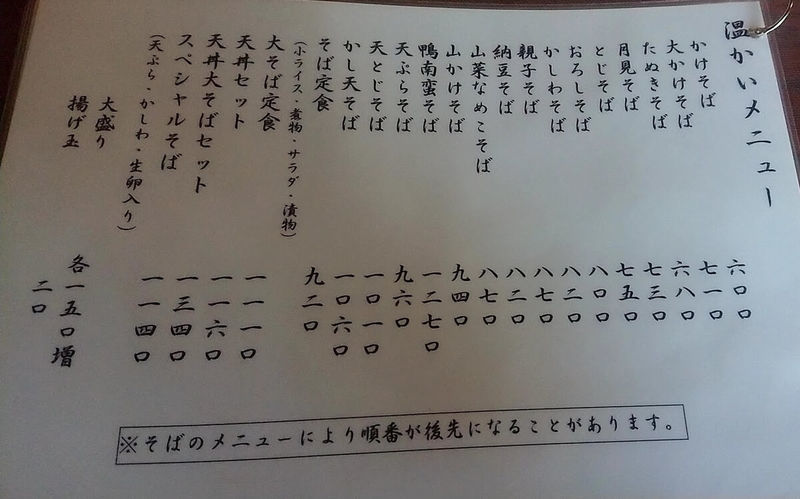 温かいメニュー
かけそば 六〇〇
大かけそば 七一〇
たぬきそば 六八〇
月見そば 七三〇
とじそば 七五〇
おろしそば 八〇〇
かしわそば 八二〇
親子そば 八七〇
納豆そば 八二〇
山菜なめこそば 八七〇
山かけそば 九四〇
鴨南蛮そば 一二七〇
天ぷらそば 九六〇
天とじそば 一〇一〇
かし天そば 一〇六〇
そば定食 九二〇
(小ライス・煮物・サラダ・漬物)
大そば定食 一一一〇
天丼セット 一一六〇
天丼大そばセット 一三四〇
スペシャルそば 一一四〇
(天ぷら・かしわ・生卵入り)
大盛り 各一五〇増
揚げ玉 二〇
※そばのメニューにより順番が後先になることがあります。